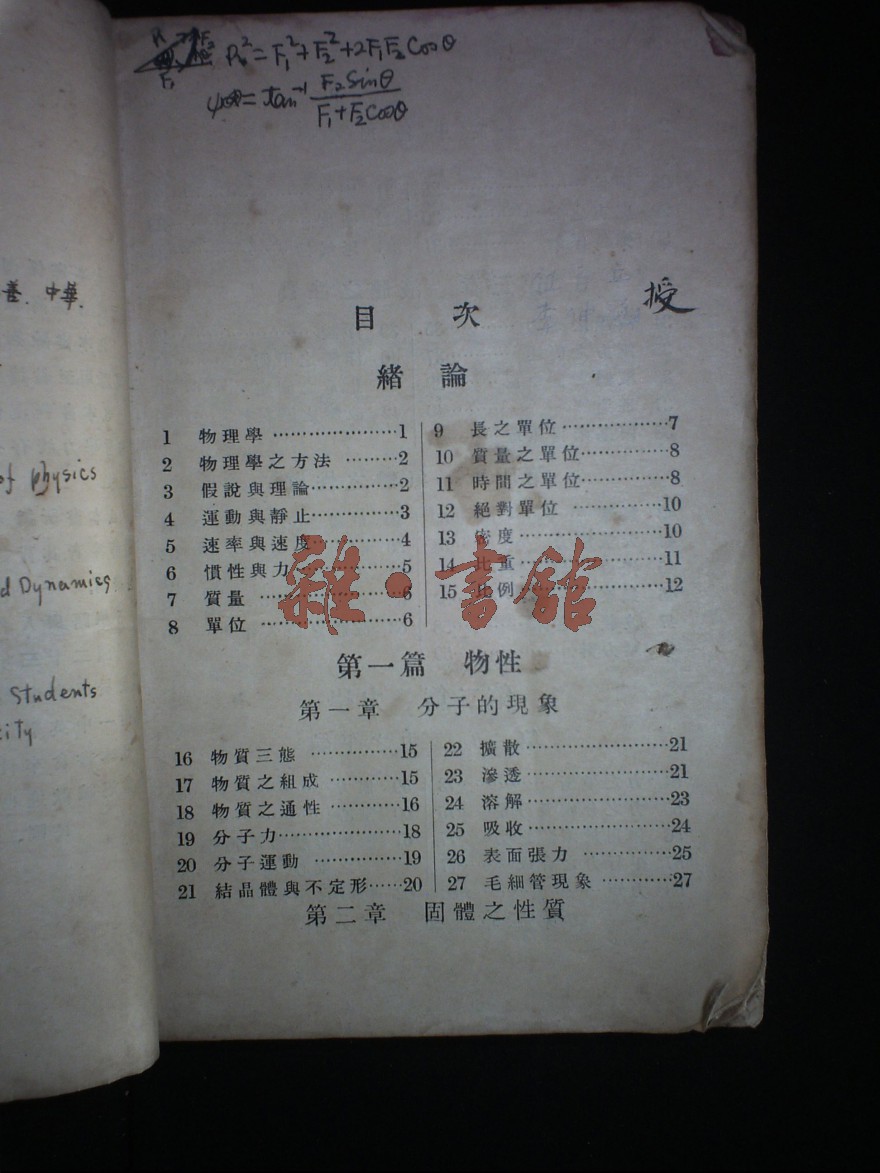 善. 中華.
of physics
d Dynamics
Students
city
R
F₁
R²=F₁²+F₂²+2F₁F₂Cosθ
=tan⁻¹ F₂Sinθ
F₁+F₂Cosθ
授
目 次
緒 論
1 物理學 …………………1
2 物理學之方法 ………2
3 假說與理論……………2
4 運動與靜止……………3
5 速率與速度……………4
6 慣性與力………………5
7 質量 ……………………6
8 單位 ……………………6
9 長之單位………………7
10 質量之單位……………8
11 時間之單位……………8
12 絕對單位 ……………10
13 密度……………………10
14 比重……………………11
15 比例……………………12
雜·書館
第一篇 物性
第一章 分子的現象
16 物質三態 ……………15
17 物質之組成 …………15
18 物質之通性 …………16
19 分子力…………………18
20 分子運動 ……………19
21 結晶體與不定形……20
22 擴散……………………21
23 滲透……………………21
24 溶解……………………23
25 吸收……………………24
26 表面張力 ……………25
27 毛細管現象 …………27
第二章 固體之性質